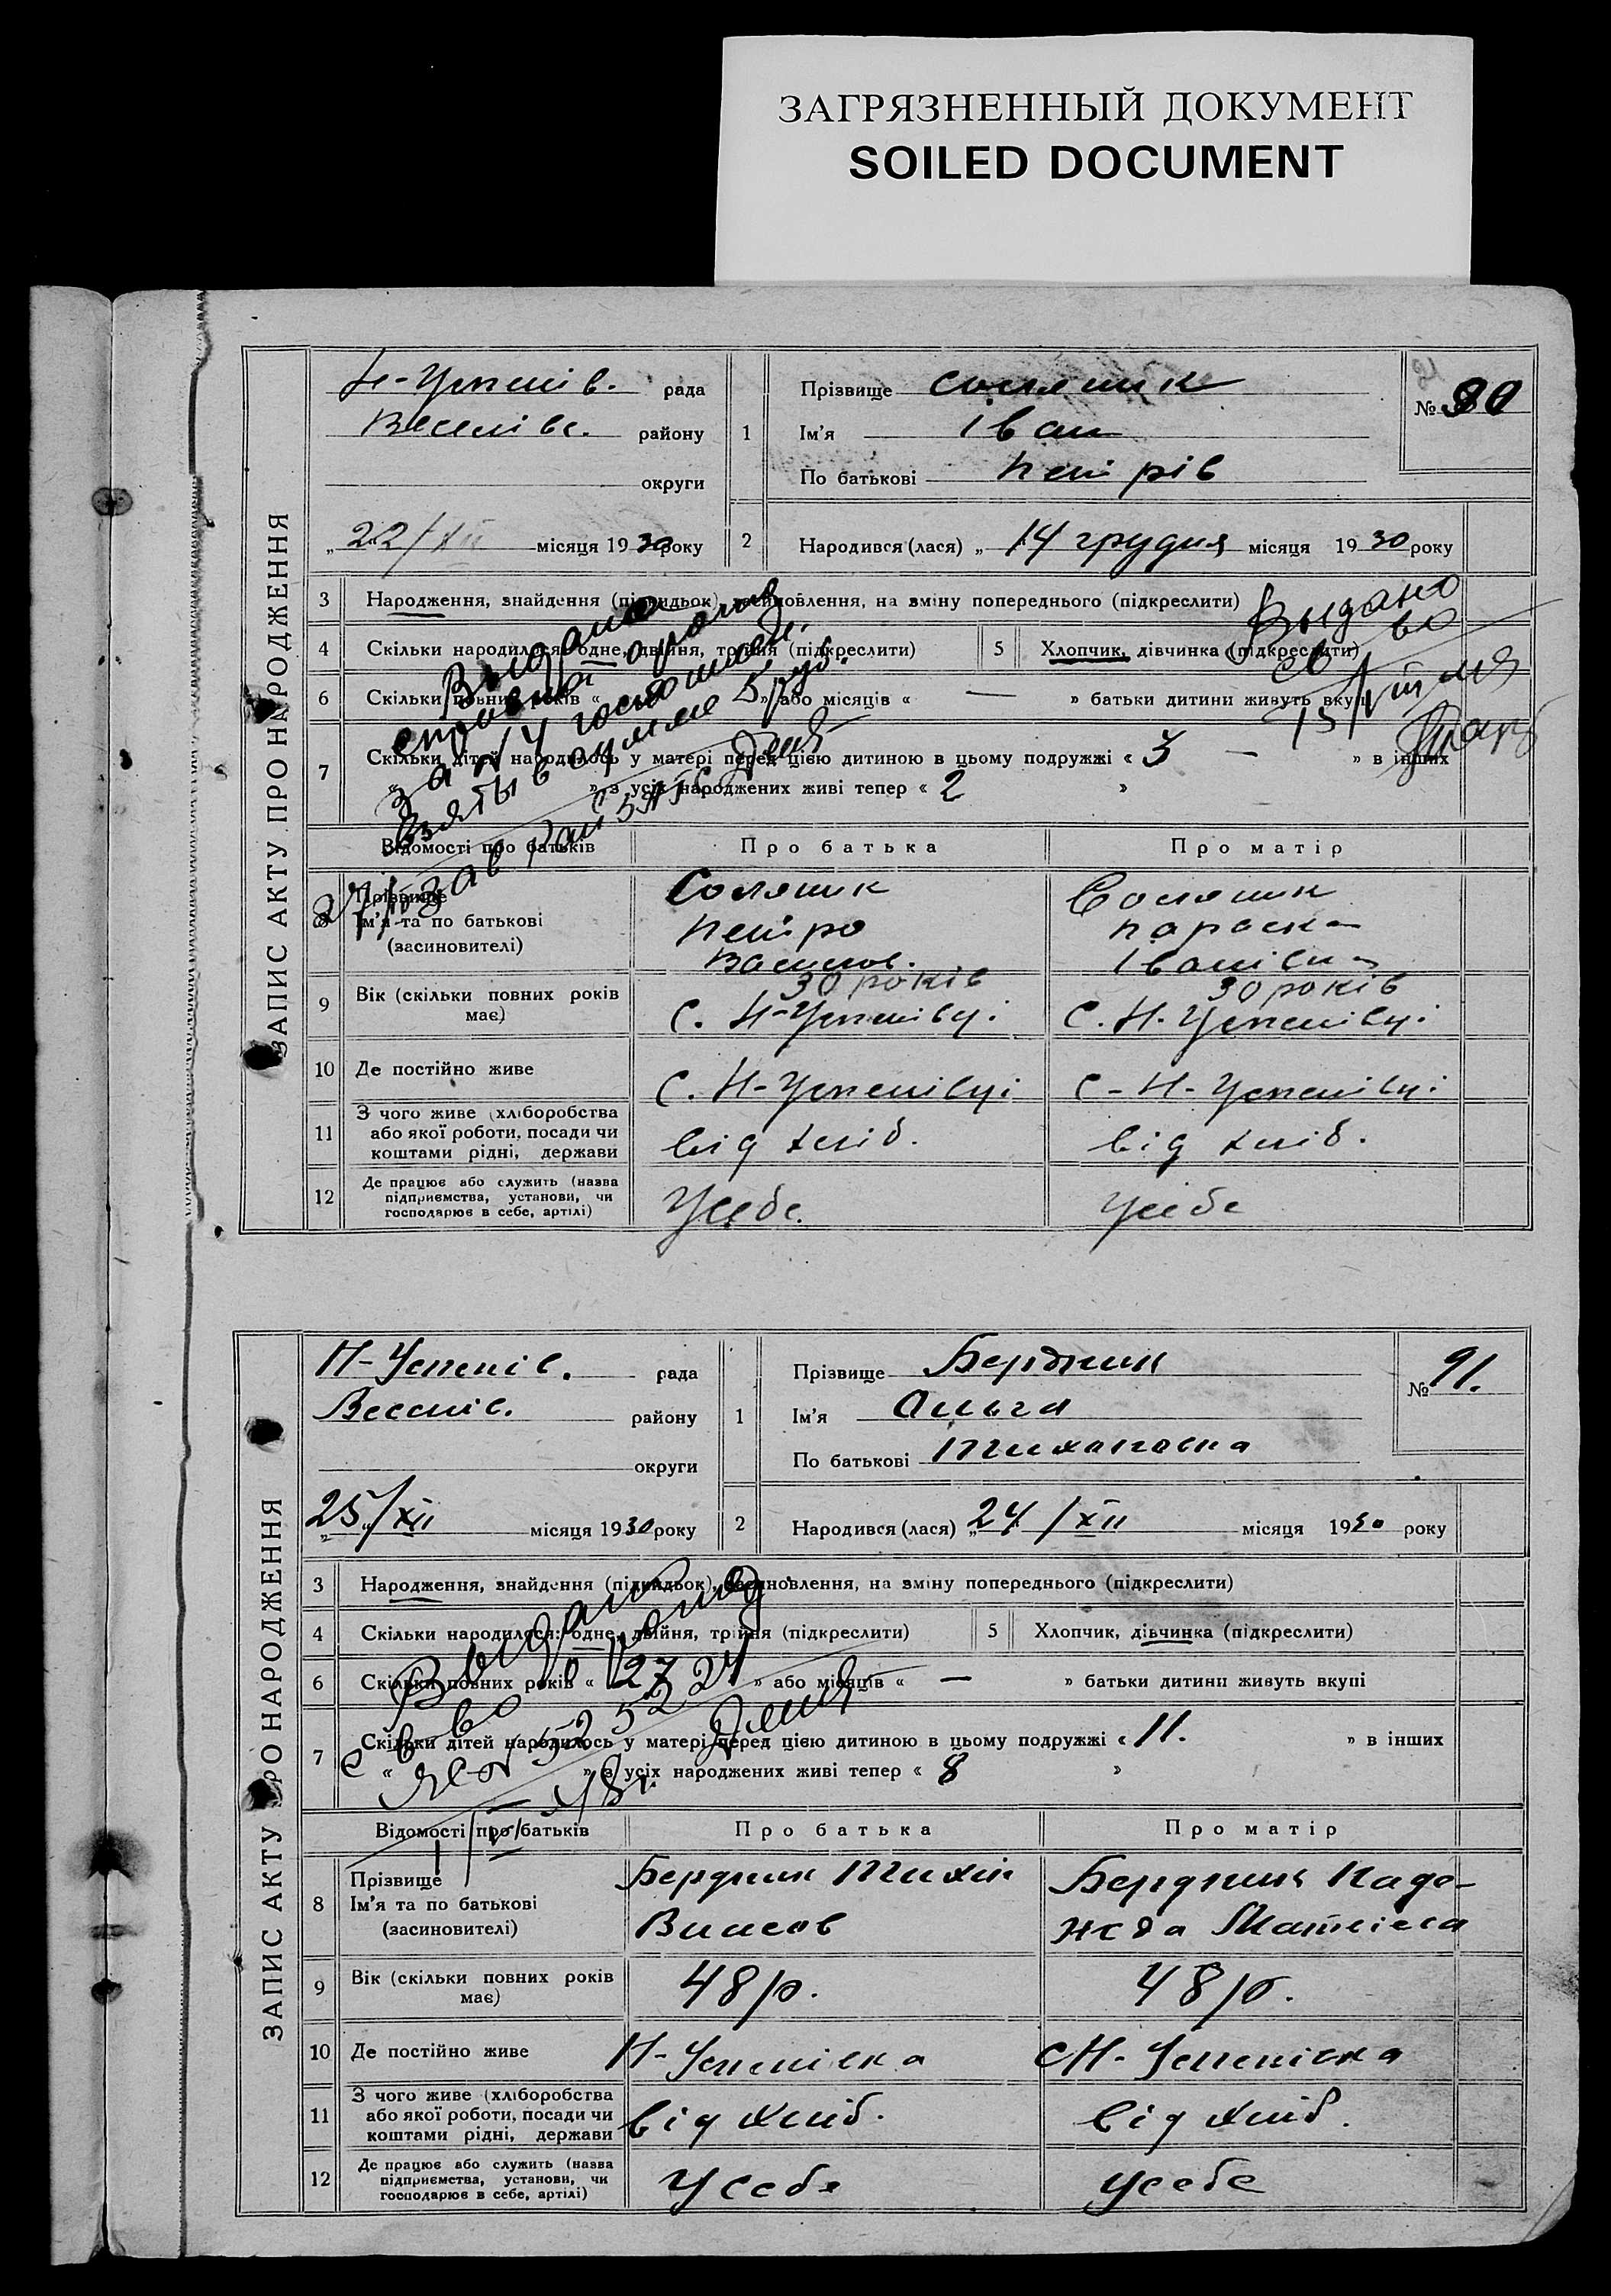 ЗАГРЯЗНЕННЫЙ ДОКУМЕНТ
SOILED DOCUMENT
ЗАПИС АКТУ ПРО НАРОДЖЕННЯ
Н-Успенів. рада
Веселівс. району
округи
„ 22/XII місяця 1930 року
1
Прізвище Соляник
Ім'я Іван
По батькові Петрів
№ 90
2 Народився (лася) „ 14 грудня місяця 1930 року
3 Народження, знайдення (підкидьок), усиновлення, на зміну попереднього (підкреслити)
4 Скільки народилося: одне, двійня, трійня (підкреслити) 5 Хлопчик, дівчинка (підкреслити)
6 Скільки повних років « » або місяців « — » батьки дитини живуть вкупі
7 Скільки дітей народилось у матері перед цією дитиною в цьому подружжі « 3 — » в інших
« » з усіх народжених живі тепер « 2 »
Выдано
Выдано
св во
5 руб.
Відомості про батьків Про батька Про матір
8 Прізвище
Ім'я та по батькові
(засиновителі)
Соляник
Петро
Васильов.
Соляник
Параска
Іванівна
9 Вік (скільки повних років має)
30 років
с. Н-Успенівці
30 років
с. Н-Успенівці
10 Де постійно живе
с. Н-Успенівці
с-Н-Успенівці
11 З чого живе (хліборобства
або якої роботи, посади чи
коштами рідні, держави
від хліб.
від хліб.
12 Де працює або служить (назва
підприємства, установи, чи
господарює в себе, артілі)
Усебе.
Усебе
ЗАПИС АКТУ ПРО НАРОДЖЕННЯ
Н-Успенів. рада
Веселів. району
округи
„ 25/XII місяця 1930 року
1
Прізвище Бердник
Ім'я Ольга
По батькові Тихоновна
№ 91.
2 Народився (лася) „ 24/XII місяця 1930 року
3 Народження, знайдення (підкидьок), усиновлення, на зміну попереднього (підкреслити)
4 Скільки народилося: одне, двійня, трійня (підкреслити) 5 Хлопчик, дівчинка (підкреслити)
6 Скільки повних років « 27 » або місяців « — » батьки дитини живуть вкупі
7 Скільки дітей народилось у матері перед цією дитиною в цьому подружжі « 11. » в інших
« » з усіх народжених живі тепер « 8 »
Выдано
с в во
Відомості про батьків Про батька Про матір
8 Прізвище
Ім'я та по батькові
(засиновителі)
Бердник Тихін
Власов
Бердник Наде-
жда Матвієва
9 Вік (скільки повних років має)
48 р.
48 р.
10 Де постійно живе
Н-Успенівка
сН-Успенівка
11 З чого живе (хліборобства
або якої роботи, посади чи
коштами рідні, держави
від хліб.
від хліб.
12 Де працює або служить (назва
підприємства, установи, чи
господарює в себе, артілі)
Усебе
усебе